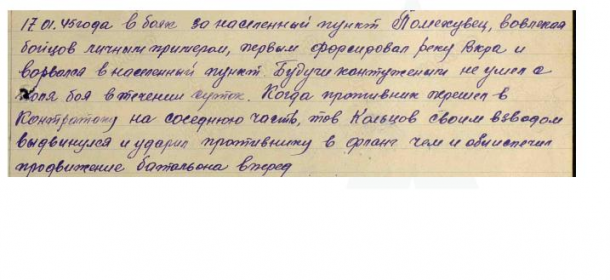 17.01.45 года в боях за населенный пункт Помехувец, вовлекая
бойцов личным примером, первым форсировал реку Вкра и
ворвался в населенный пункт. Будучи контуженым не ушел с
поля боя в течении суток. Когда противник перешел в
Контратаку на соседнюю часть, тов Кольцов своим взводом
выдвинулся и ударил противнику в фланг чем и обеиспечил
продвижение батальона вперед